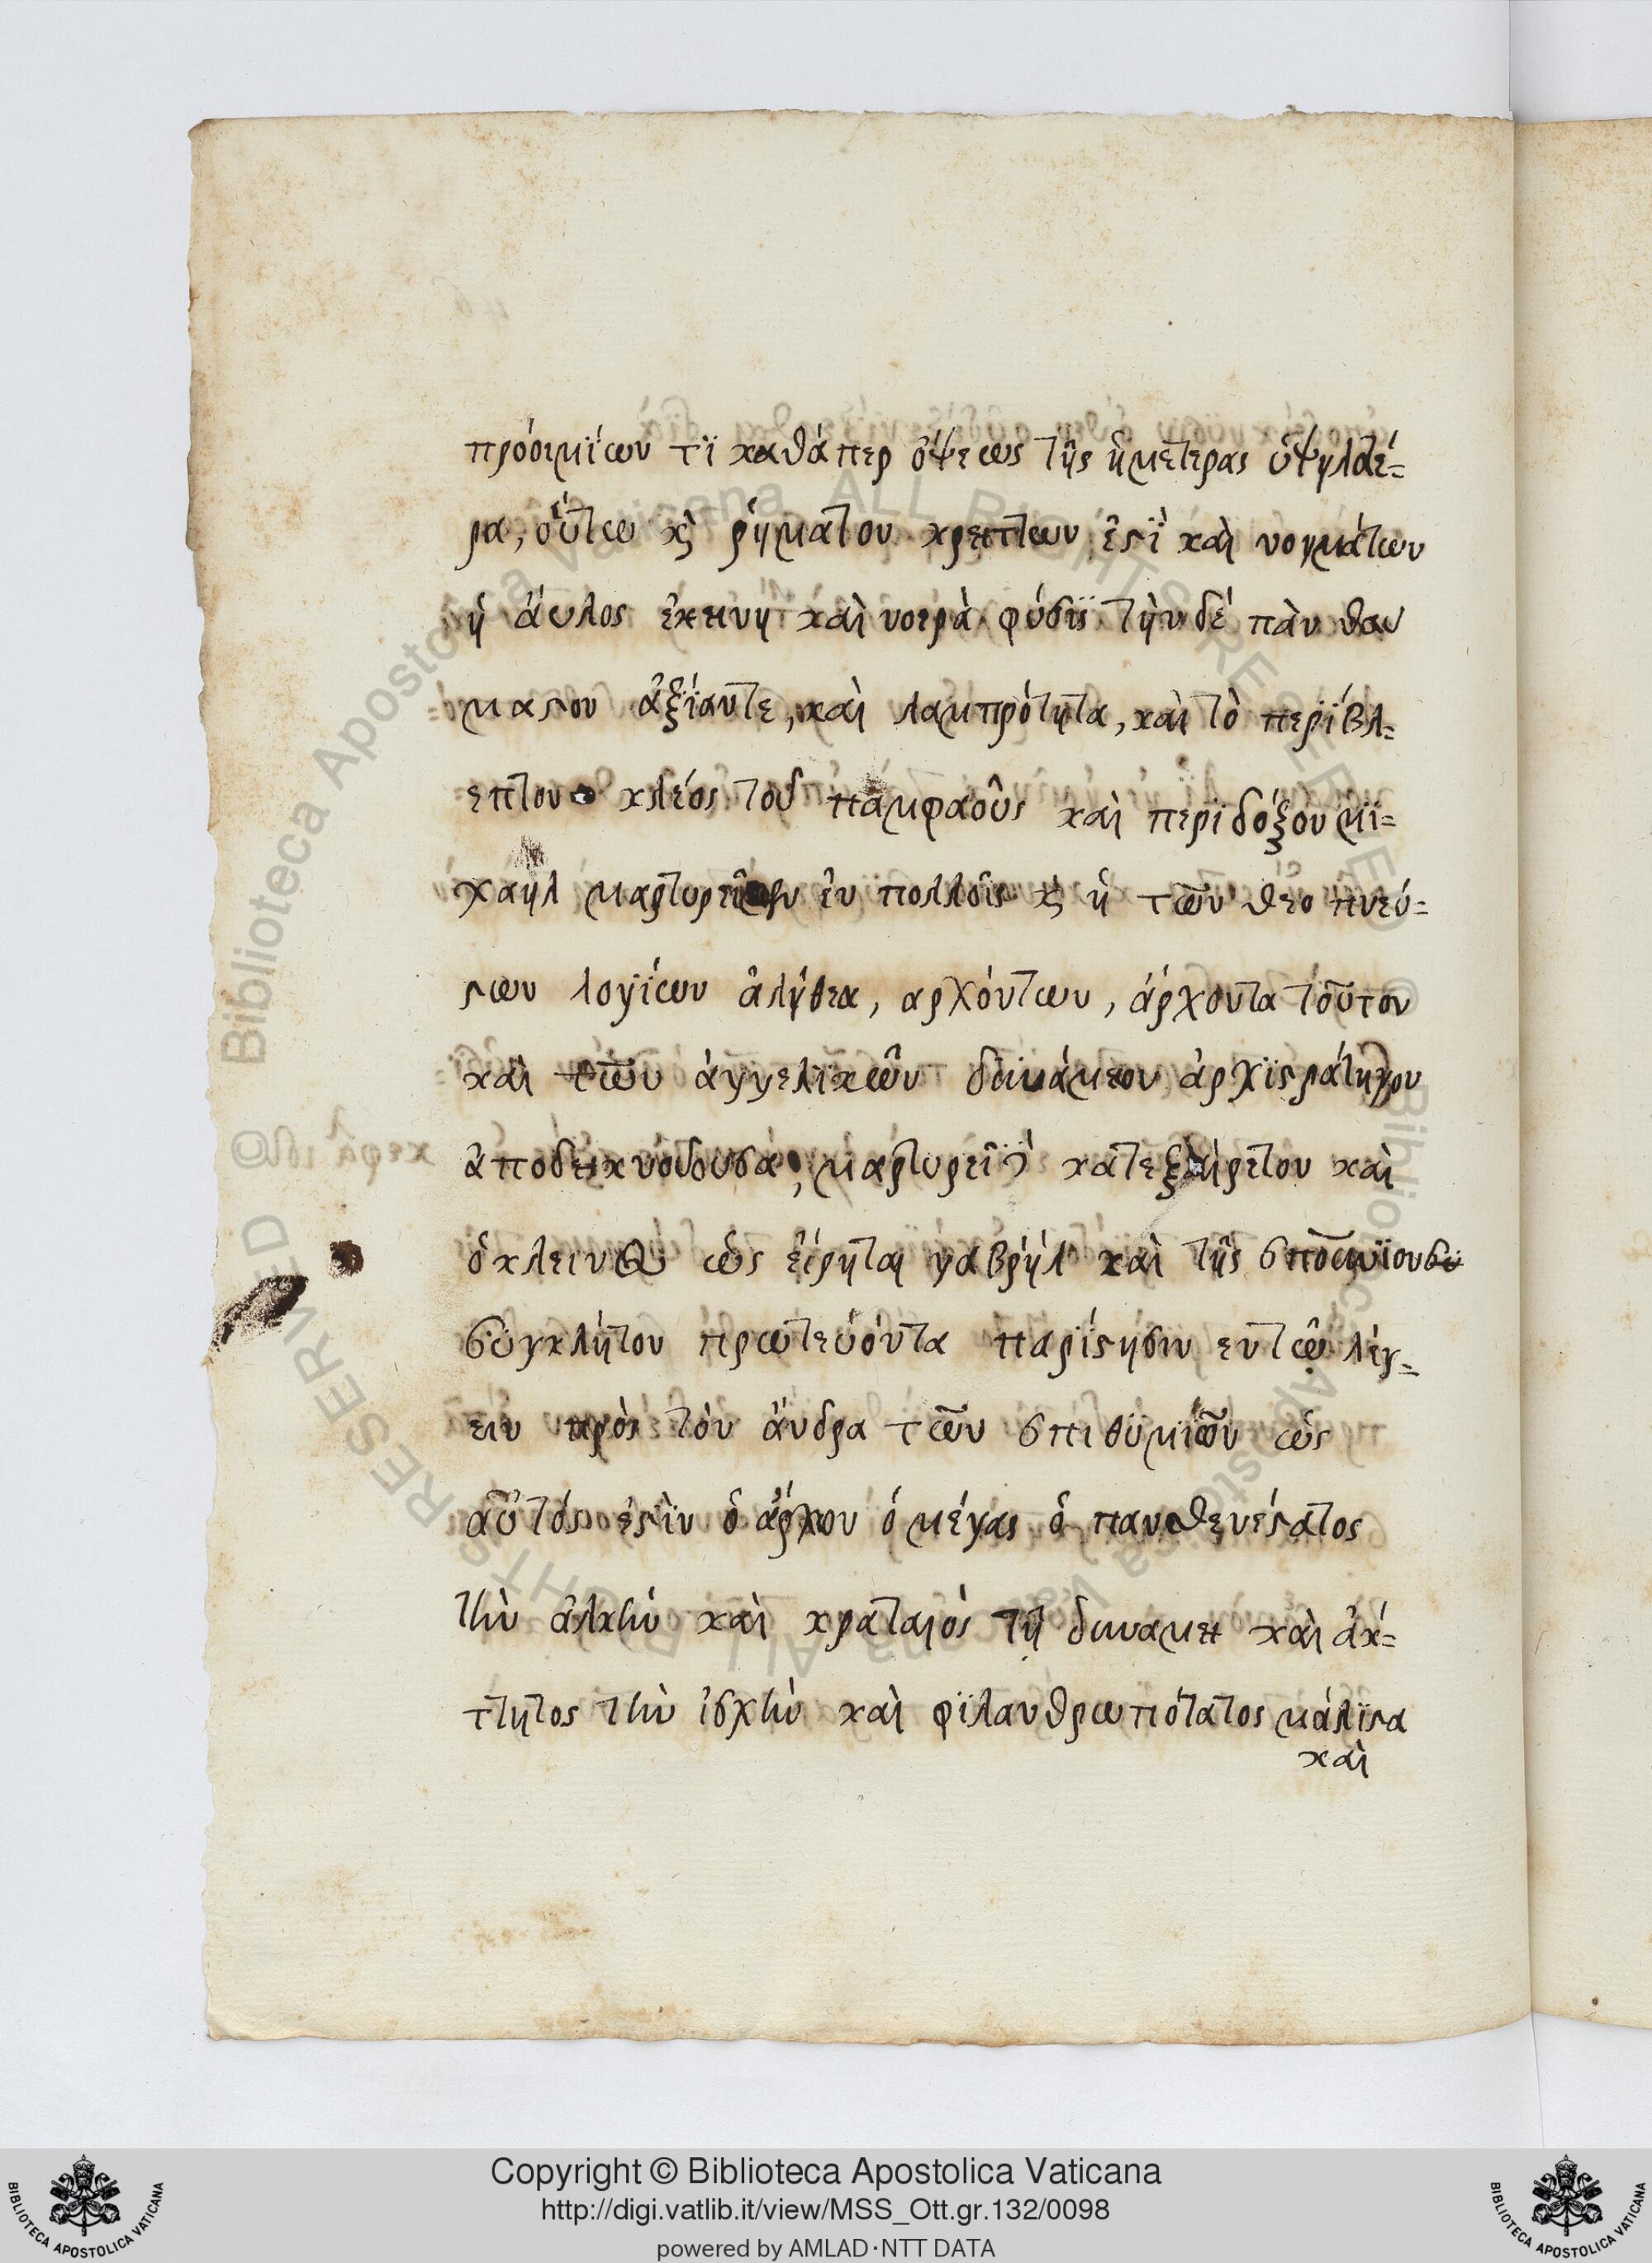 προοιμΐων τϊ καθάπερ ὄψεως τῆς ἡμετερας ὑψηλᾶτέ=
ρα, οὕτω κ ῥήματον κρειττων ἐστῒ καὶ νοημάτων
ἡ ἄϋλος ἐκεινη καὶ νοερὰ φύσϊς τὴν δέ πὰν θαυ
μαστον ἀξΐαντε, καὶ λαμπρότητα, καὶ τὸ περΐβλ=
επτον κλέος τοῦ παμφαοῦς καὶ περϊδόξου μϊ=
χαήλ μαρτυρεῖ ἐν πολλοῖς κ ἡ τῶν θεοπνεύ=
στων λογΐων ἀλήθεια, αρχόντων, ἄρχοντα τοῦτον
καὶ τῶν ἀγγελϊκῶν δυνάμεον ἀρχϊστράτηγον
ἀποδεικνύουσα, μαρτυρεῖ κατεξαίρετον καὶ
ὁκλεινὸς ὡς εἴρηται γαβρϊήλ καὶ τῆς
σϋγκλήτου πρωτεύόντα παρΐστησιν εντῶ λέγ=
ειν πρὸς τὸν ἄνδρα τῶν ἐπιθϋμϊῶν ὡς
αὗτός ἐστὶν ὁ ἄρχον ὁ μέγας ὁ πανσθενέστατος
τὴν ἀλκὴν καὶ κραταιὸς τῆ δυναμει καὶ ἀή=
ττητος τὴν ἰσχὴν καὶ φϊλανθρωπότατος μάλϊστα
καὶ
Copyright © Biblioteca Apostolica Vaticana
http://digi.vatlib.it/view/MSS_Ott.gr.132/0098
powered by AMLAD·NTT DATA
BIBLIOTECA APOSTOLICA VATICANA
BIBLIOTECA APOSTOLICA VATICANA